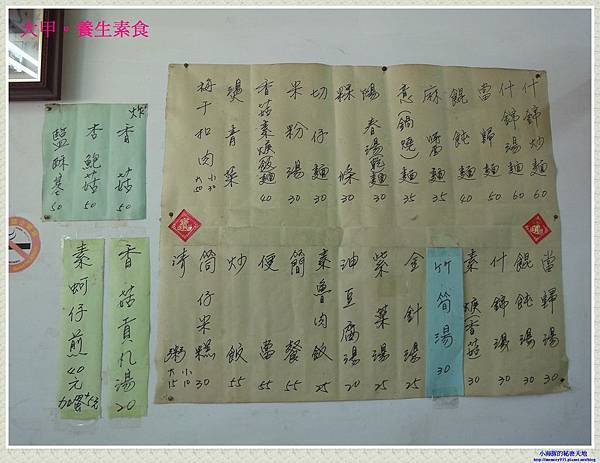 大甲。養生素食
什錦炒麵 60
什錦湯麵 60
當歸麵 50
餛飩麵 40
麻醬麵 35
意(鍋燒)麵 35
陽春湯乾麵 30
粿條 30
切仔麵 30
米粉湯 30
香菇素焿飯麵 40
燙青菜 小30
梅干扣肉 大50
當歸湯 30
餛飩湯 30
什錦湯 30
素焿(香菇) 30
竹筍湯 30
金針湯 25
紫菜湯 25
油豆腐湯 20
素魯肉飯 25
簡餐 55
便當 55
炒飯 55
筒仔米糕 30
清粥 大15 小10
炸
香菇 50
杏鮑菇 50
鹽酥 50
香菇貢丸湯 20
素蚵仔煎 40元
加蛋+5元
小海豚的秘密天地